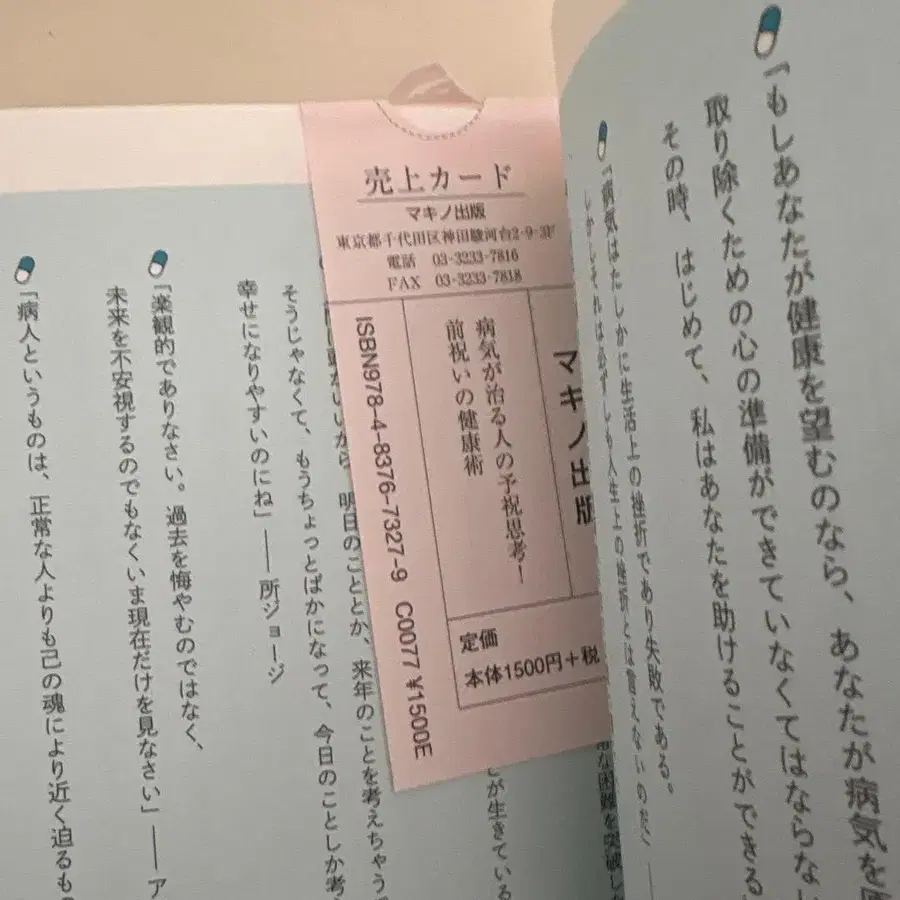 『もしあなたが健康を望むのなら、あなたが病気を
取り除くための心の準備ができていなくてはならない
その時、はじめて、私はあなたを助けることができる
『病気はたしかに生活上の挫折であり失敗である。
しかしそれは必ずしも人生上の挫折とは言えないのだ
売上カード
マキノ出版
東京都千代田区神田駿河台2-9-3F
電話 03-3233-7816
FAX 03-3233-7818
マキノ出版
病気が治る人の予祝思考!
前祝いの健康術
ISBN978-4-8376-7327-9 C0077 ¥1500E
定価
本体1500円+税
が生きている
明日のこととか、来年のことを考えちゃう
そうじゃなくて、もうちょっとばかになって、今日のことしか考
幸せになりやすいのにね」── 所ジョージ
「楽観的でありなさい。過去を悔やむのではなく、
未来を不安視するのでもなくいま現在だけを見なさい」── ア
「病人というものは、正常な人よりも己の魂により近く迫るもの